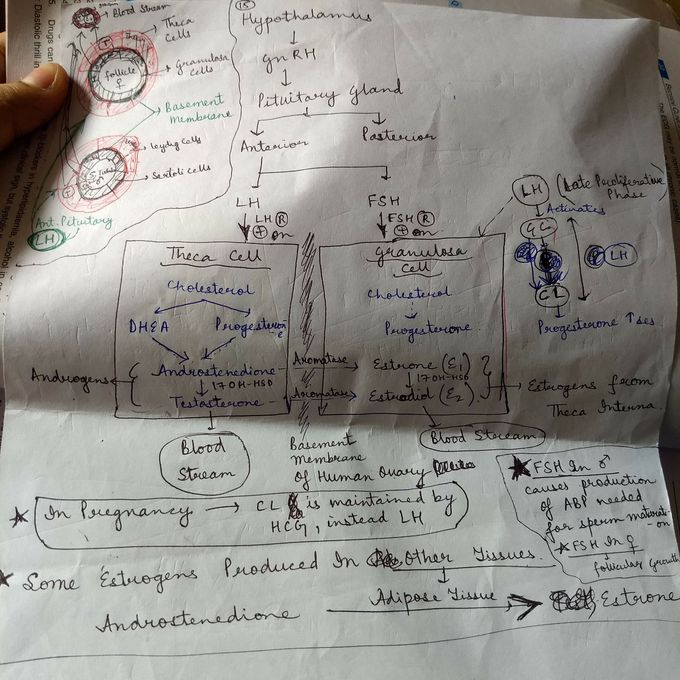 Blood Stream
Theca
Cells
T
Granulosa
Cells
follicle
♀
Basement
Membrane
Leydig cells
Sertoli cells
T
Ant. Pituitary
LH
5. Drugs can
Diastolic thrill in
15
Hypothalamus
GnRH
Pituitary Gland
Anterior
Posterior
LH
FSH
LH R
+ on
FSH R
+ on
LH (Late Proliferative
Phase)
Activates
GC
LH
CL
Progesterone ↑ses
Theca Cell
Cholesterol
DHEA
Progesterone
Androstenedione
17OH-HSD
Testosterone
Androgens
Granulosa
Cell
Cholesterol
Progesterone
Aromatase
Estrone (E1)
17OH-HSD
Aromatase
Estradiol (E2).
Estrogens from
Theca Interna.
Blood
Stream
Basement
Membrane
of Human Ovary
Blood Stream
★ In Pregnancy → CL is maintained by
HCG, instead LH
★ FSH In ♂
causes production
of ABP needed
for sperm maturati-
on
★ FSH In ♀
follicular Growth
★ Some Estrogens Produced In Other Tissues.
Androstenedione
Adipose Tissue
Estrone